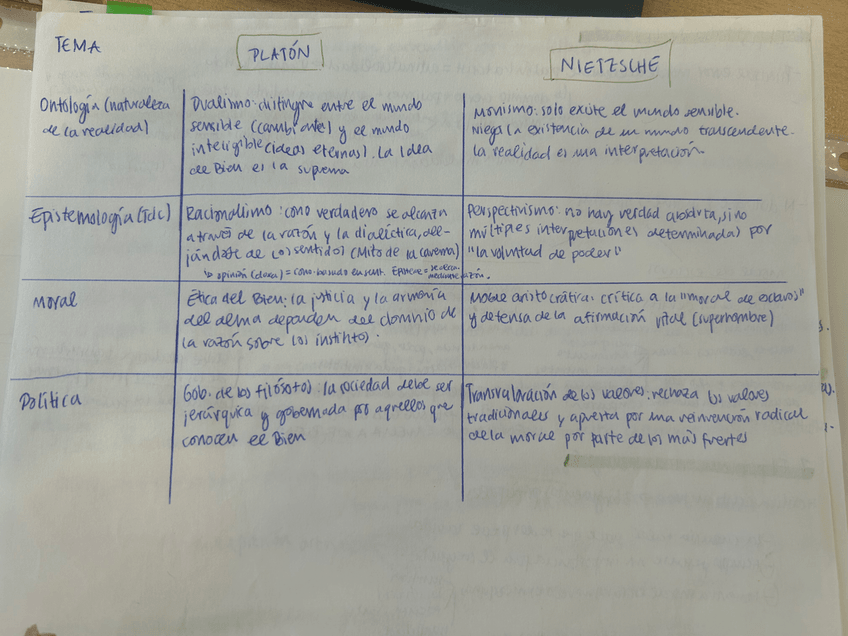 TEMA
PLATÓN
NIETZSCHE
Ontología (naturaleza
de la realidad)
Dualismo: distingue entre el mundo
sensible (cambiante) y el mundo
inteligible (ideas eternas). La Idea
de Bien es la suprema
Monismo: solo existe el mundo sensible.
Niega la existencia de un mundo transcendente.
La realidad es una interpretación.
Epistemología (Tdc)
Racionalismo: cono verdadero se alcanza
a través de la razón y la dialéctica, ale-
jándose de los sentidos (Mito de la caverna)
↳ opinión (doxa) = cono. basado en sent. Episteme = se alcanza
mediante razón.
Perspectivismo: no hay verdad absoluta, sino
múltiples interpretaciones determinadas por
"la voluntad de poder"
Moral
Ética del Bien: la justicia y la armonía
del alma dependen del dominio de
la razón sobre los instintos.
Moral aristocrática. crítica a la "moral de esclavos"
y defensa de la afirmación vital (superhombre)
Política
Gob. de los filósofos: la sociedad debe ser
jerárquica y gobernada por aquellos que
conocen el Bien
Transvaloración de los valores: rechaza los valores
tradicionales y apuesta por una reinvención radical
de la moral por parte de los más fuertes